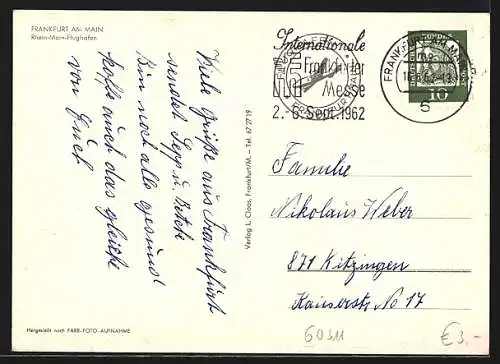 FRANKFURT AM MAIN
Rhein-Main-Flughafen
Viele Grüße aus Frankfurt
sendet Sepp u.
Bin noch alle gesund
hoffe auch das gleiche
von Euch
Hergestellt nach FARB-FOTO-AUFNAHME
Verlag L. Claas, Frankfurt/M. – Tel. 67 27 19
Internationale
Frankfurter
Messe
2.-6. Sept. 1962
FRANKFURT
6
10
Familie
Nikolaus Weber
871 Kitzingen
Kaiserstr. No 17
60311
€ 3.-